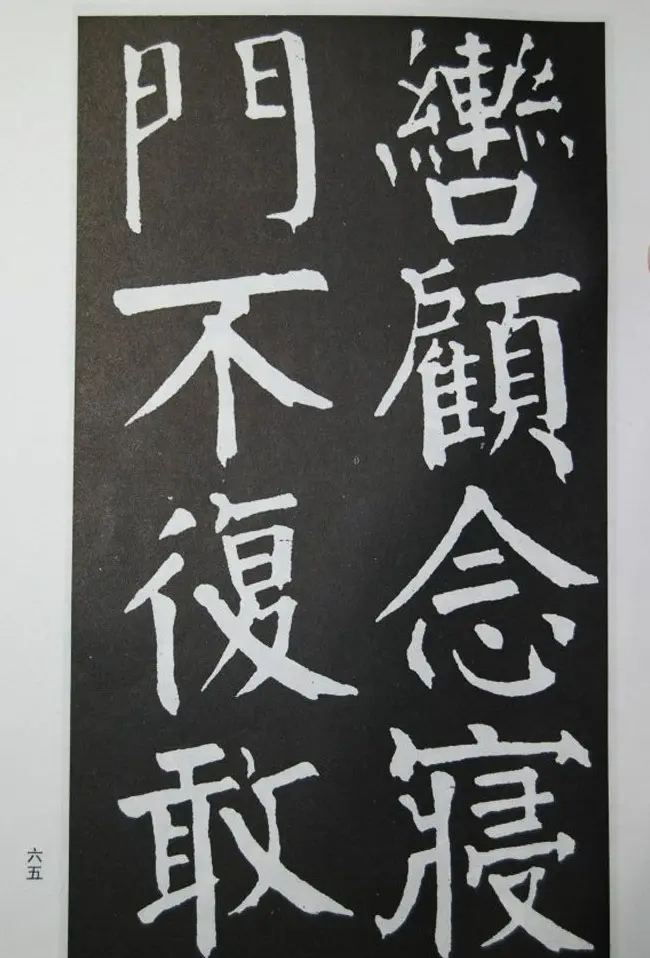 轡顧念寢
門不復敢
六五